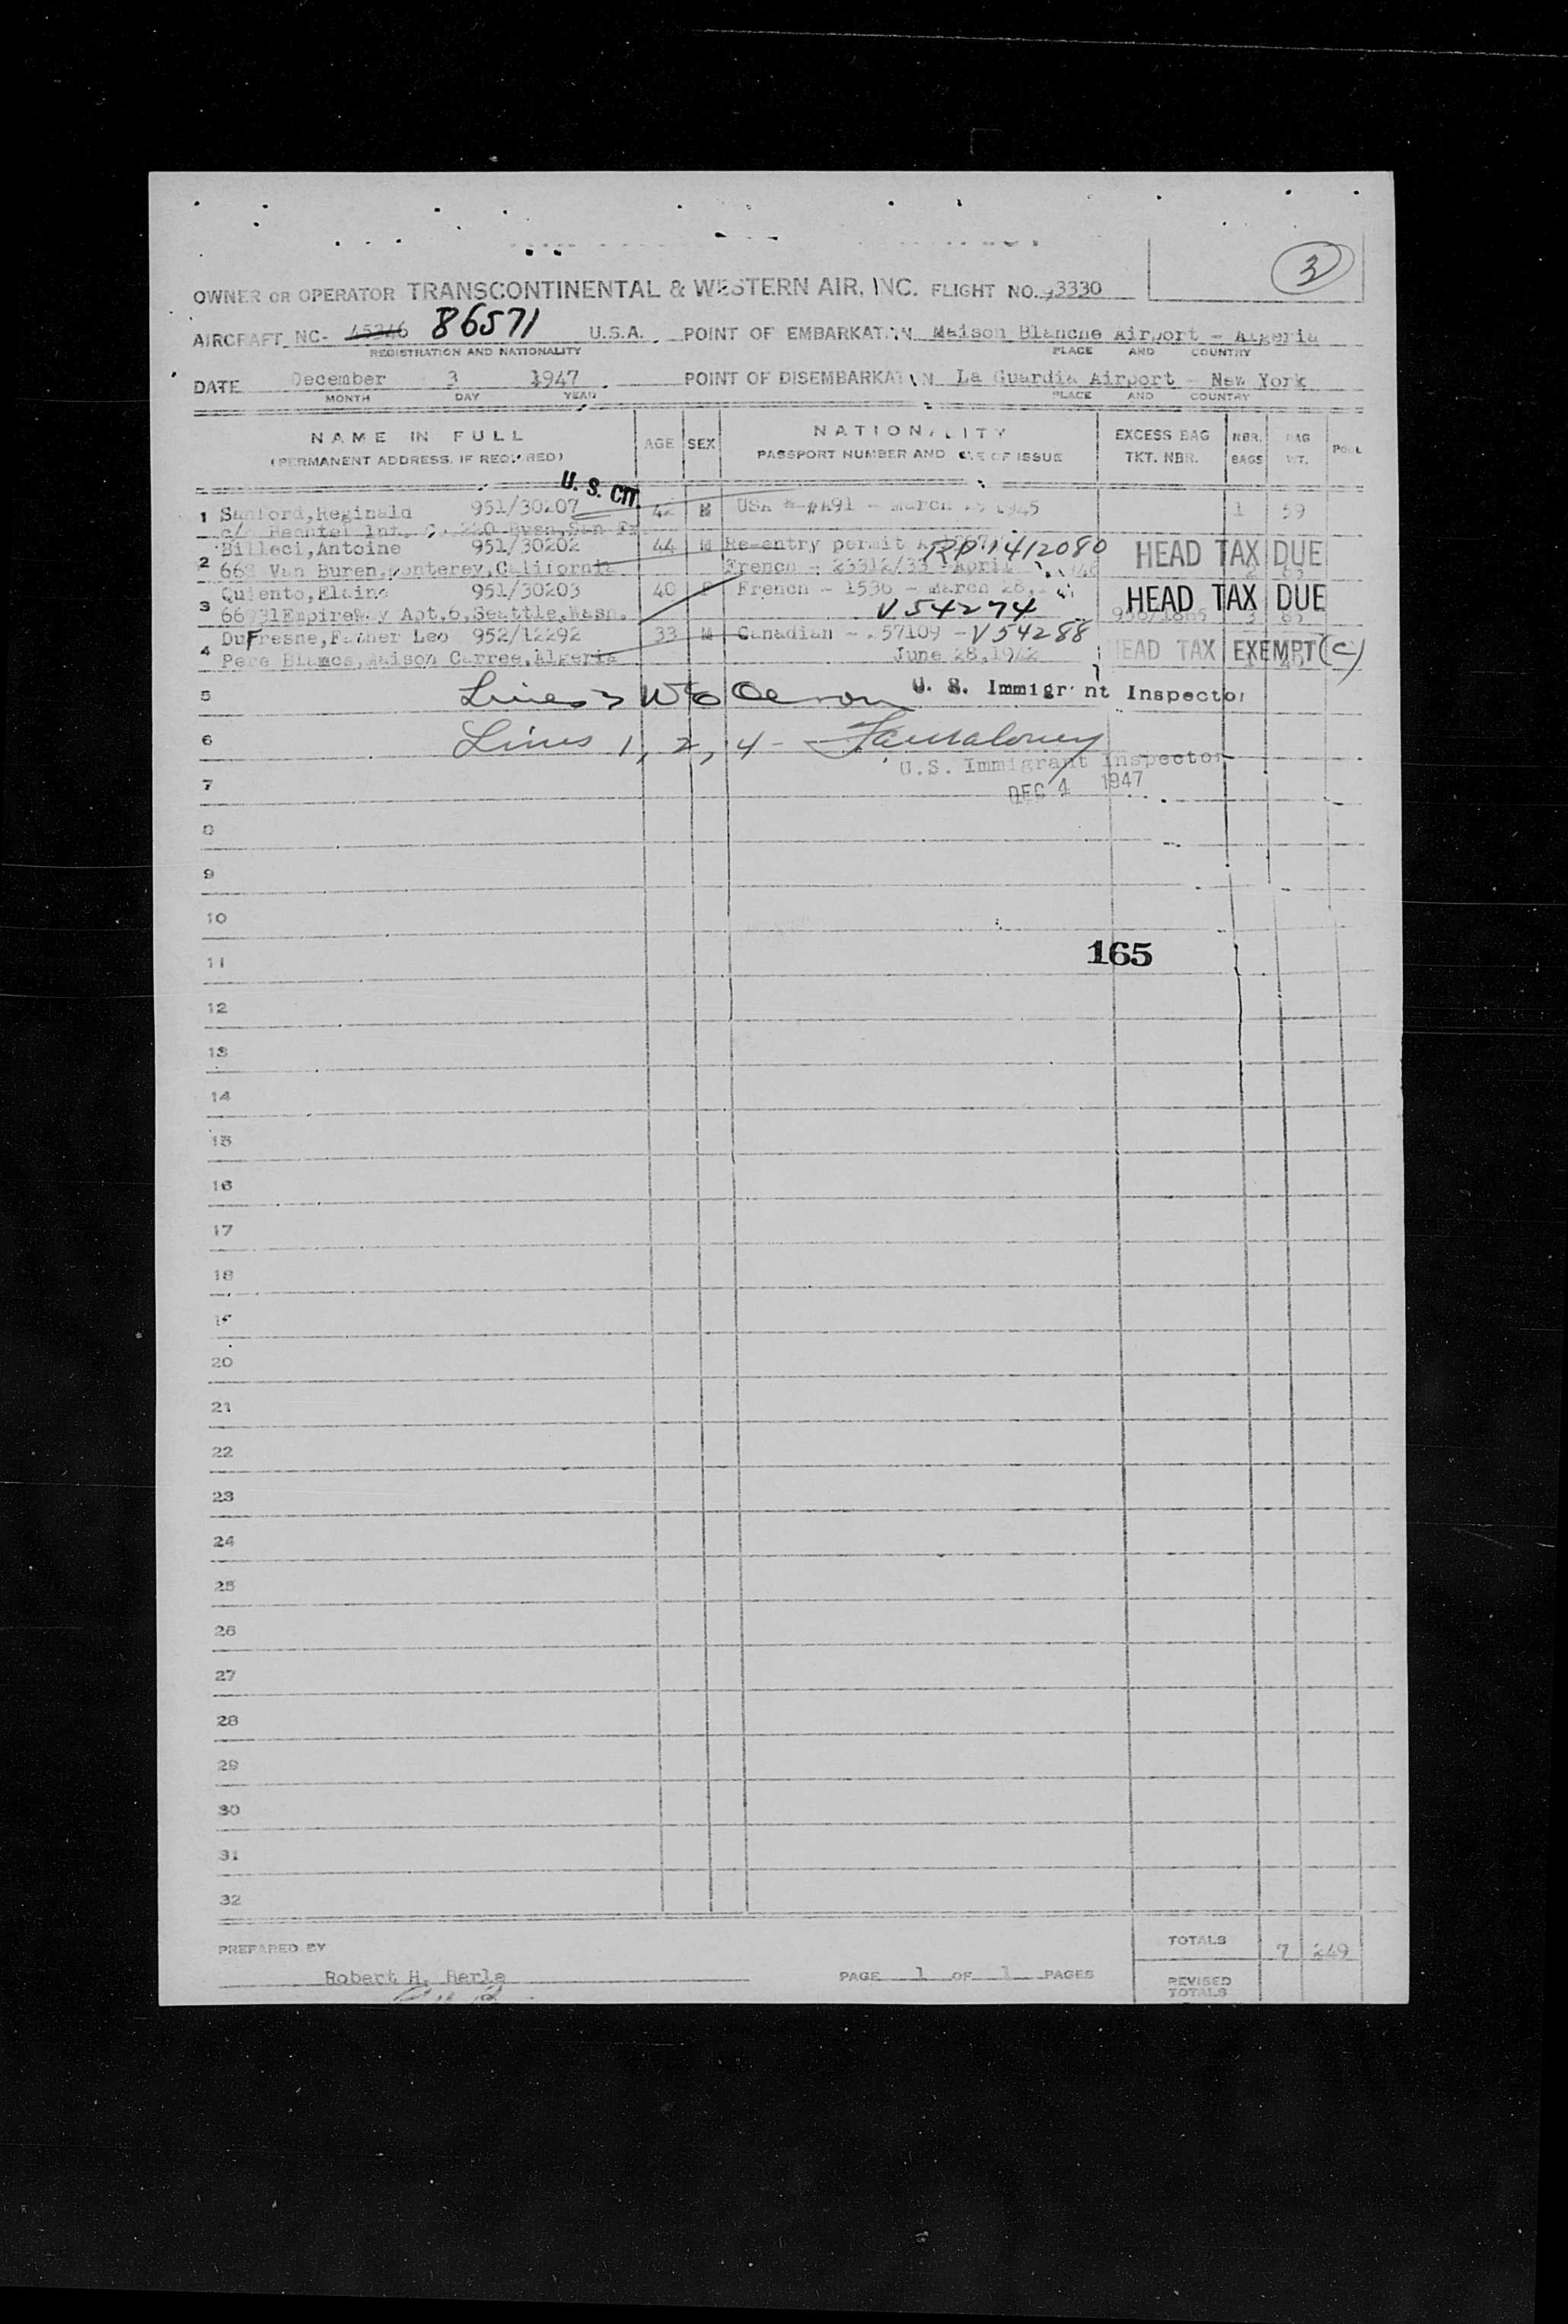 3
OWNER OR OPERATOR TRANSCONTINENTAL & WESTERN AIR, INC. FLIGHT NO. 3330
AIRCRAFT NC- 45346 86571 U.S.A. POINT OF EMBARKAT N Maison Blanche Airport - Algeria
REGISTRATION AND NATIONALITY PLACE AND COUNTRY
DATE December 3 1947 POINT OF DISEMBARKAT N La Guardia Airport - New York
MONTH DAY YEAR PLACE AND COUNTRY
NAME IN FULL AGE SEX NATIONALITY EXCESS BAG NBR. BAG POOL
(PERMANENT ADDRESS, IF REQUIRED) PASSPORT NUMBER AND OF ISSUE TKT. NBR. BAGS WT.
U. S. CIT.
1 Sanford, Reginald 951/30207 42 M USA - #491 - March 1945 1 59
c/o Bechtel Int. Co. 220 Bush, San Fr
2 Billeci, Antoine 951/30202 44 M Re-entry permit RP 1412080 HEAD TAX DUE
668 Van Buren, Monterey, California French - 23312/33 - April
3 Quiento, Elaine 951/30203 40 F French - 1536 - March 28, HEAD TAX DUE
66931EmpireWay Apt.6, Seattle, Wash. V54274
4 DuFresne, Father Leo 952/12292 33 M Canadian - 57109 - V54288 HEAD TAX EXEMPT (C)
Pere Blancs, Maison Carree, Algeria June 28, 1942
5 Lines 3 U. S. Immigrant Inspector
6 Lines 1, 2, 4 -
U.S. Immigrant Inspector
7 DEC 4 1947
8
9
10
11 165
12
13
14
15
16
17
18
19
20
21
22
23
24
25
26
27
28
29
30
31
32
PREPARED BY TOTALS 7 249
Robert H. Berle PAGE 1 OF 1 PAGES REVISED
TOTALS